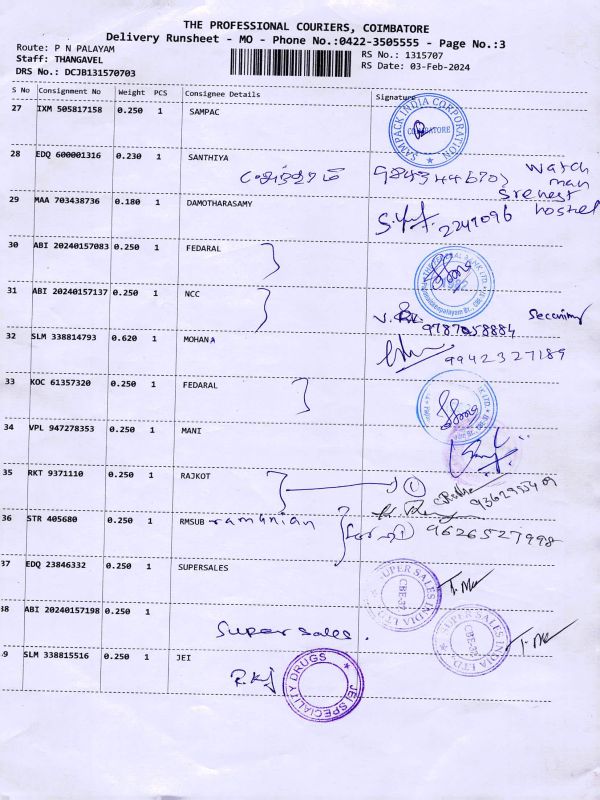 THE PROFESSIONAL COURIERS, COIMBATORE
Delivery Runsheet - MO - Phone No.:0422-3505555 - Page No.:3
Route: P N PALAYAM
Staff: THANGAVEL
DRS No.: DCJB131570703
RS No.: 1315707
RS Date: 03-Feb-2024
S No Consignment No Weight PCS Consignee Details Signature
27 IXM 505817158 0.250 1 SAMPAC
SAMPACK INDIA CORPORATION
COIMBATORE
28 EDQ 600001316 0.230 1 SANTHIYA
watch
man
29 MAA 703438736 0.180 1 DAMOTHARASAMY
2249096
hostel
30 ABI 20240157083 0.250 1 FEDARAL
31 ABI 20240157137 0.250 1 NCC
9787058884
32 SLM 338814793 0.620 1 MOHANA
9942327189
33 KOC 61357320 0.250 1 FEDARAL
34 VPL 947278353 0.250 1 MANI
35 RKT 9371110 0.250 1 RAJKOT
1
36 STR 405680 0.250 1 RMSUB ramanian
9626527998
37 EDQ 23846332 0.250 1 SUPERSALES
SUPER SALES INDIA LTD
CBE-37
38 ABI 20240157198 0.250 1
Super sales.
SUPER SALES INDIA LTD
CBE-37
39 SLM 338815516 0.250 1 JEI
JEI SPECIALITY DRUGS